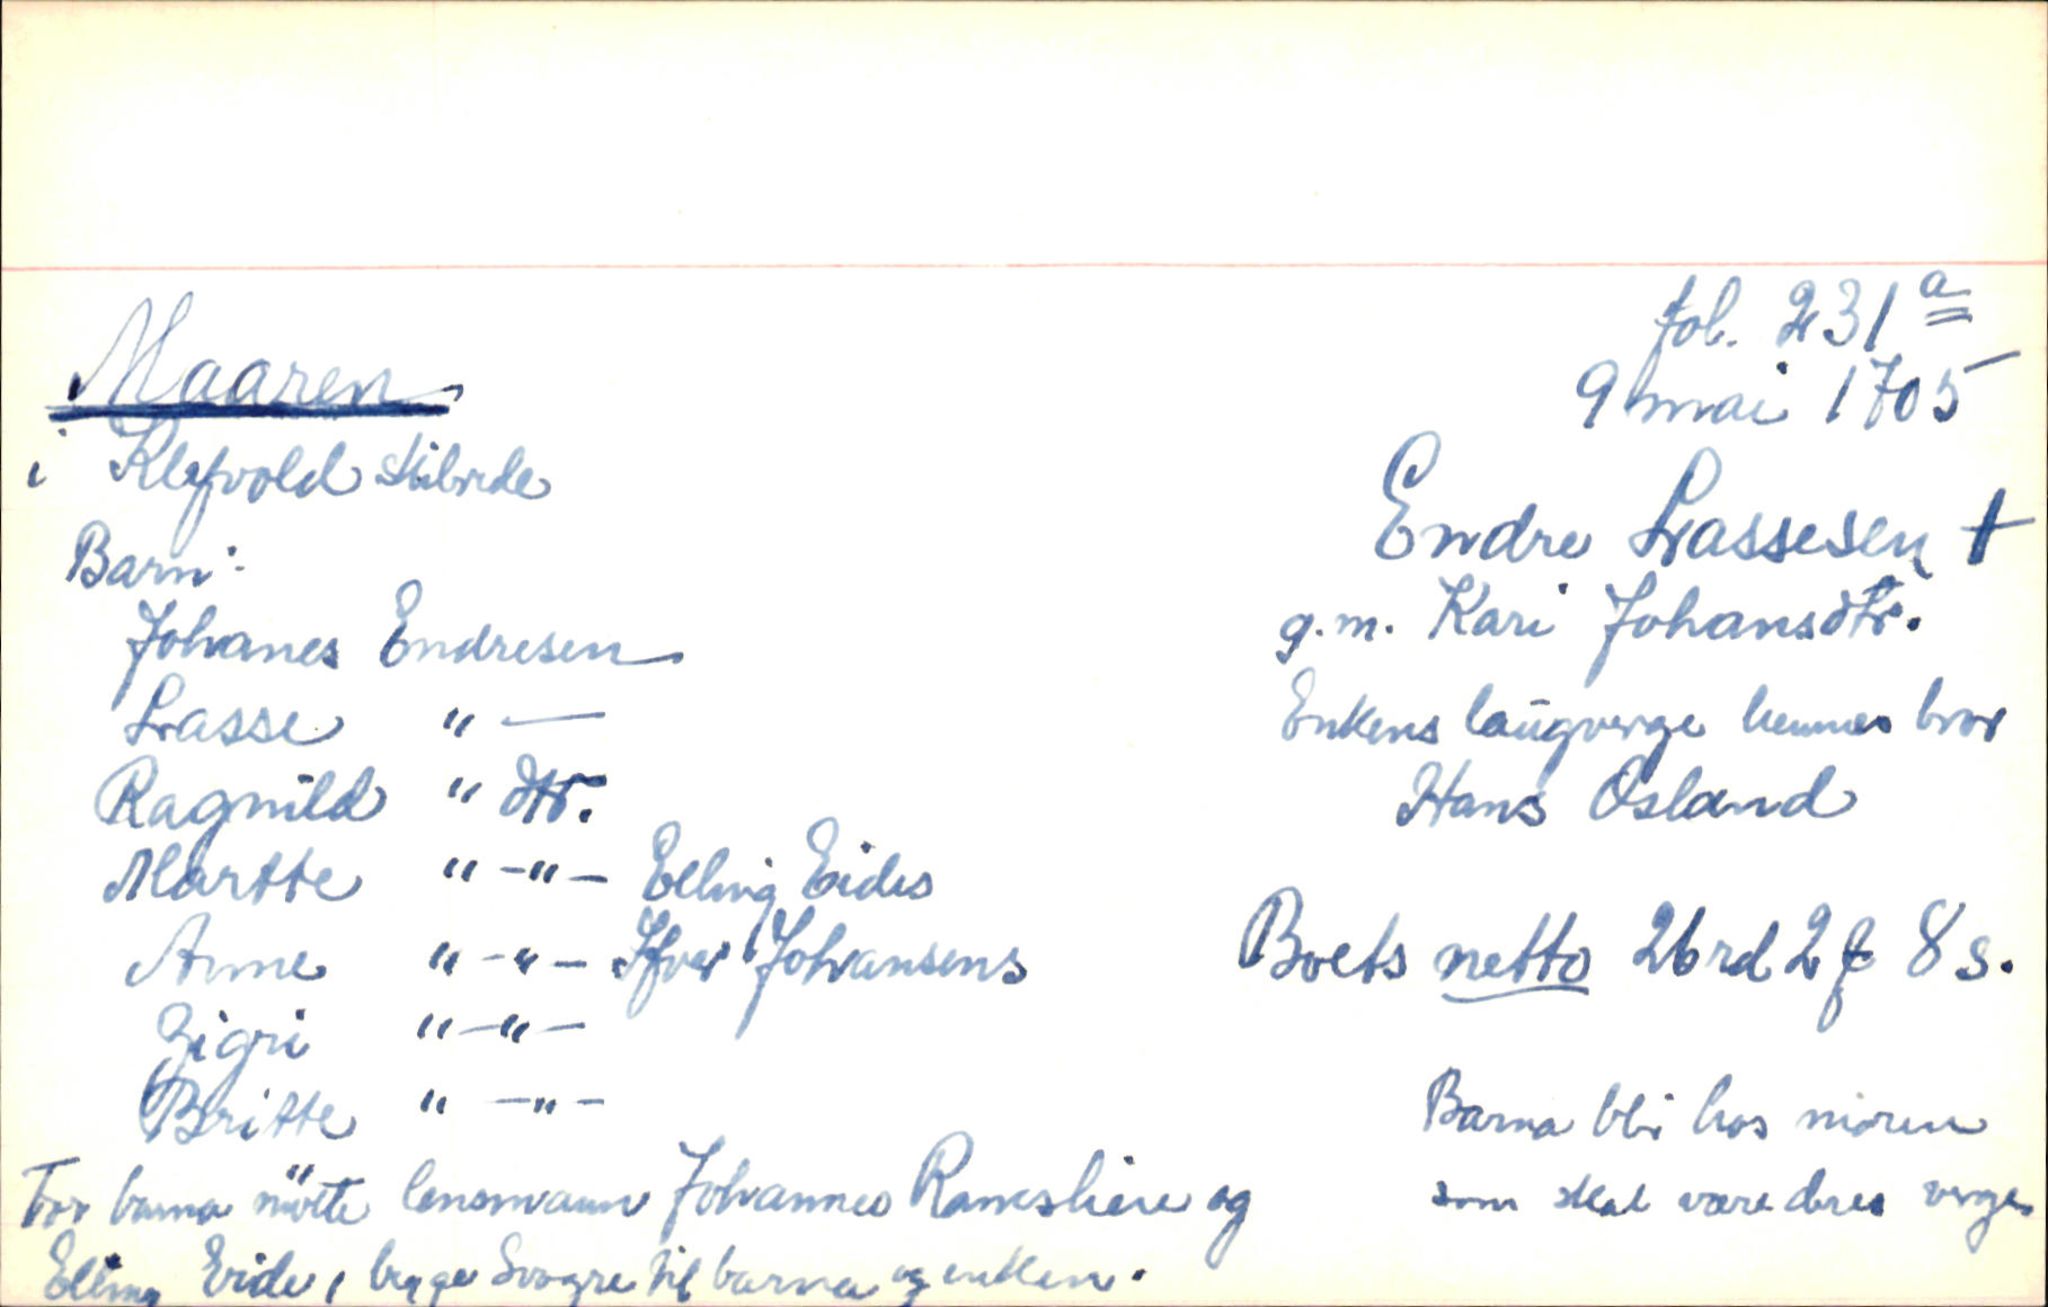 fol. 231 a
Maaren
9 mai 1705
i Klefvold skibrde
Endre Lassesen †
Barn:
g.m. Kari Johansdtr.
Johanes Endresen
Enkens laugverge hennes bror
Lasse " —
Hans Osland
Ragnild " dtr.
Martte " -"- Elling Eides
Boets netto 26 rd 2 ƒ 8 s.
Anne " -"- Ifver Johansens
Zigri " -"-
Britte " -"-
Barna bli hos moren
som skal være deres verge
For barna mötte lensmann Johannes og
Elling Eide, begge Svogre til barna og enken.